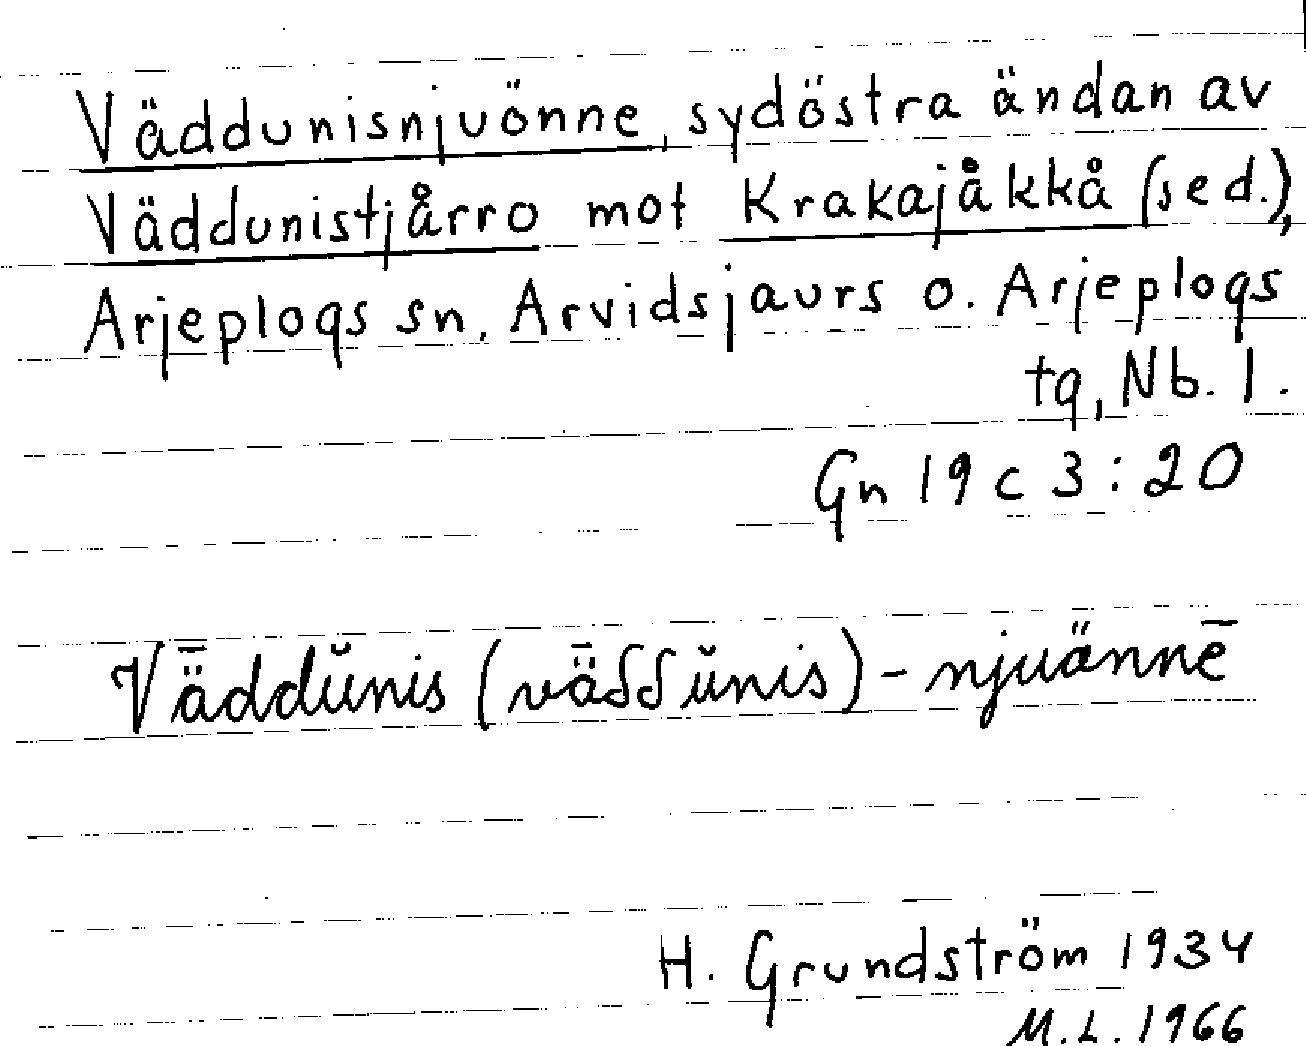 Väddunisnjuönne, sydöstra ändan av
Väddunistjårro mot Krakajåkkå (sed.),
Arjeplogs sn, Arvidsjaurs o. Arjeplogs
tg, Nb. l.
Gn 19 c 3:20
Vǟddŭnis (vǟδδŭnis)-njuännē
H. Grundström 1934
M.L. 1966